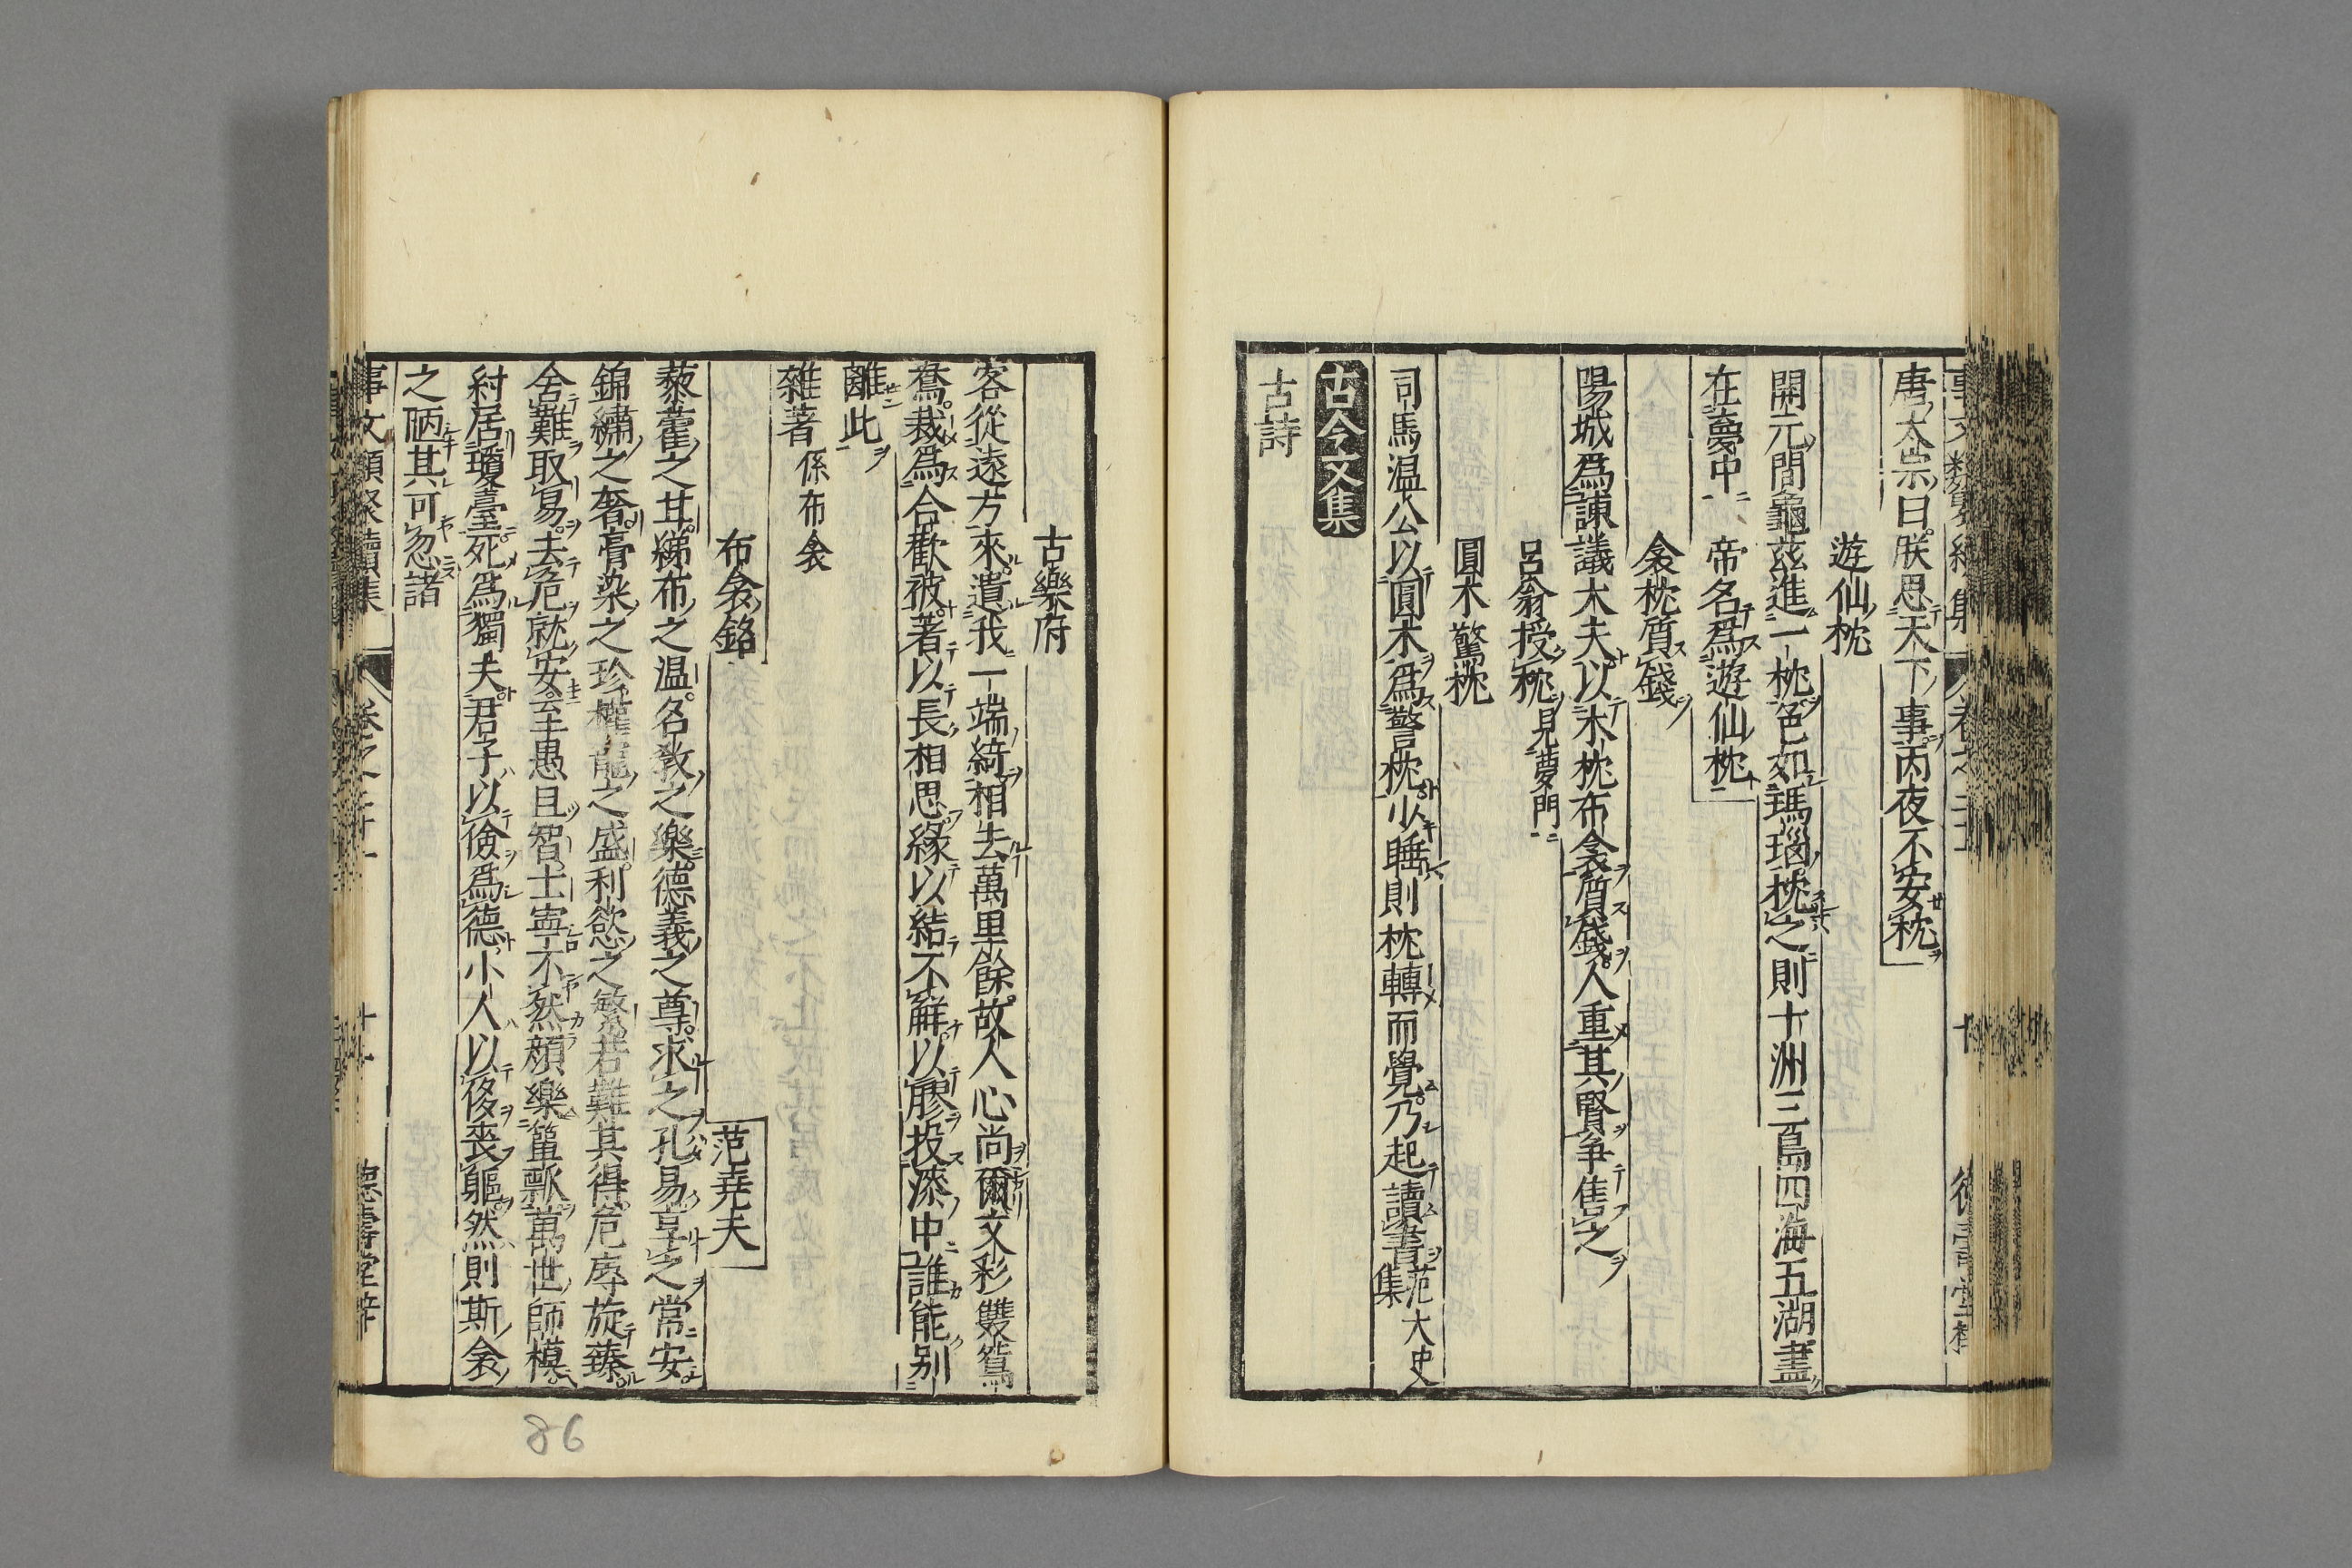 唐太宗曰朕思天下事丙夜不安枕
遊仙枕
開元間龜茲進一枕色如瑪瑙枕之則十洲三島四海五湖盡
在夢中帝名爲遊仙枕
衾枕質錢
陽城爲諫議大夫以木枕布衾質錢人重其賢争售之
呂翁授枕見夢門
圓木驚枕
司馬温公以圓木爲警枕少睡則枕轉而覺乃起讀書范大史集
古今文集
古詩
古樂府
客從遠方來遺我一端綺相去萬里餘故人心尚爾文彩雙鴛
鴦裁爲合歡被著以長相思緣以結不解以膠投漆中誰能别
離此
雜著係布衾
布衾銘
范堯夫
藜藿之甘綈布之温名教之樂德義之尊求之孔易享之常安
錦繡之奢膏染之珍權寵之盛利慾之繁苦難其得危辱旋臻
舍難取易去危就安至愚且智士寧不然顔樂簞瓢萬世師模
紂居瓊臺死爲獨夫君子以儉爲德小人以侈喪軀然則斯衾
之陋其可忽諸
事文類聚續集
卷之二十一
德壽堂梓
86